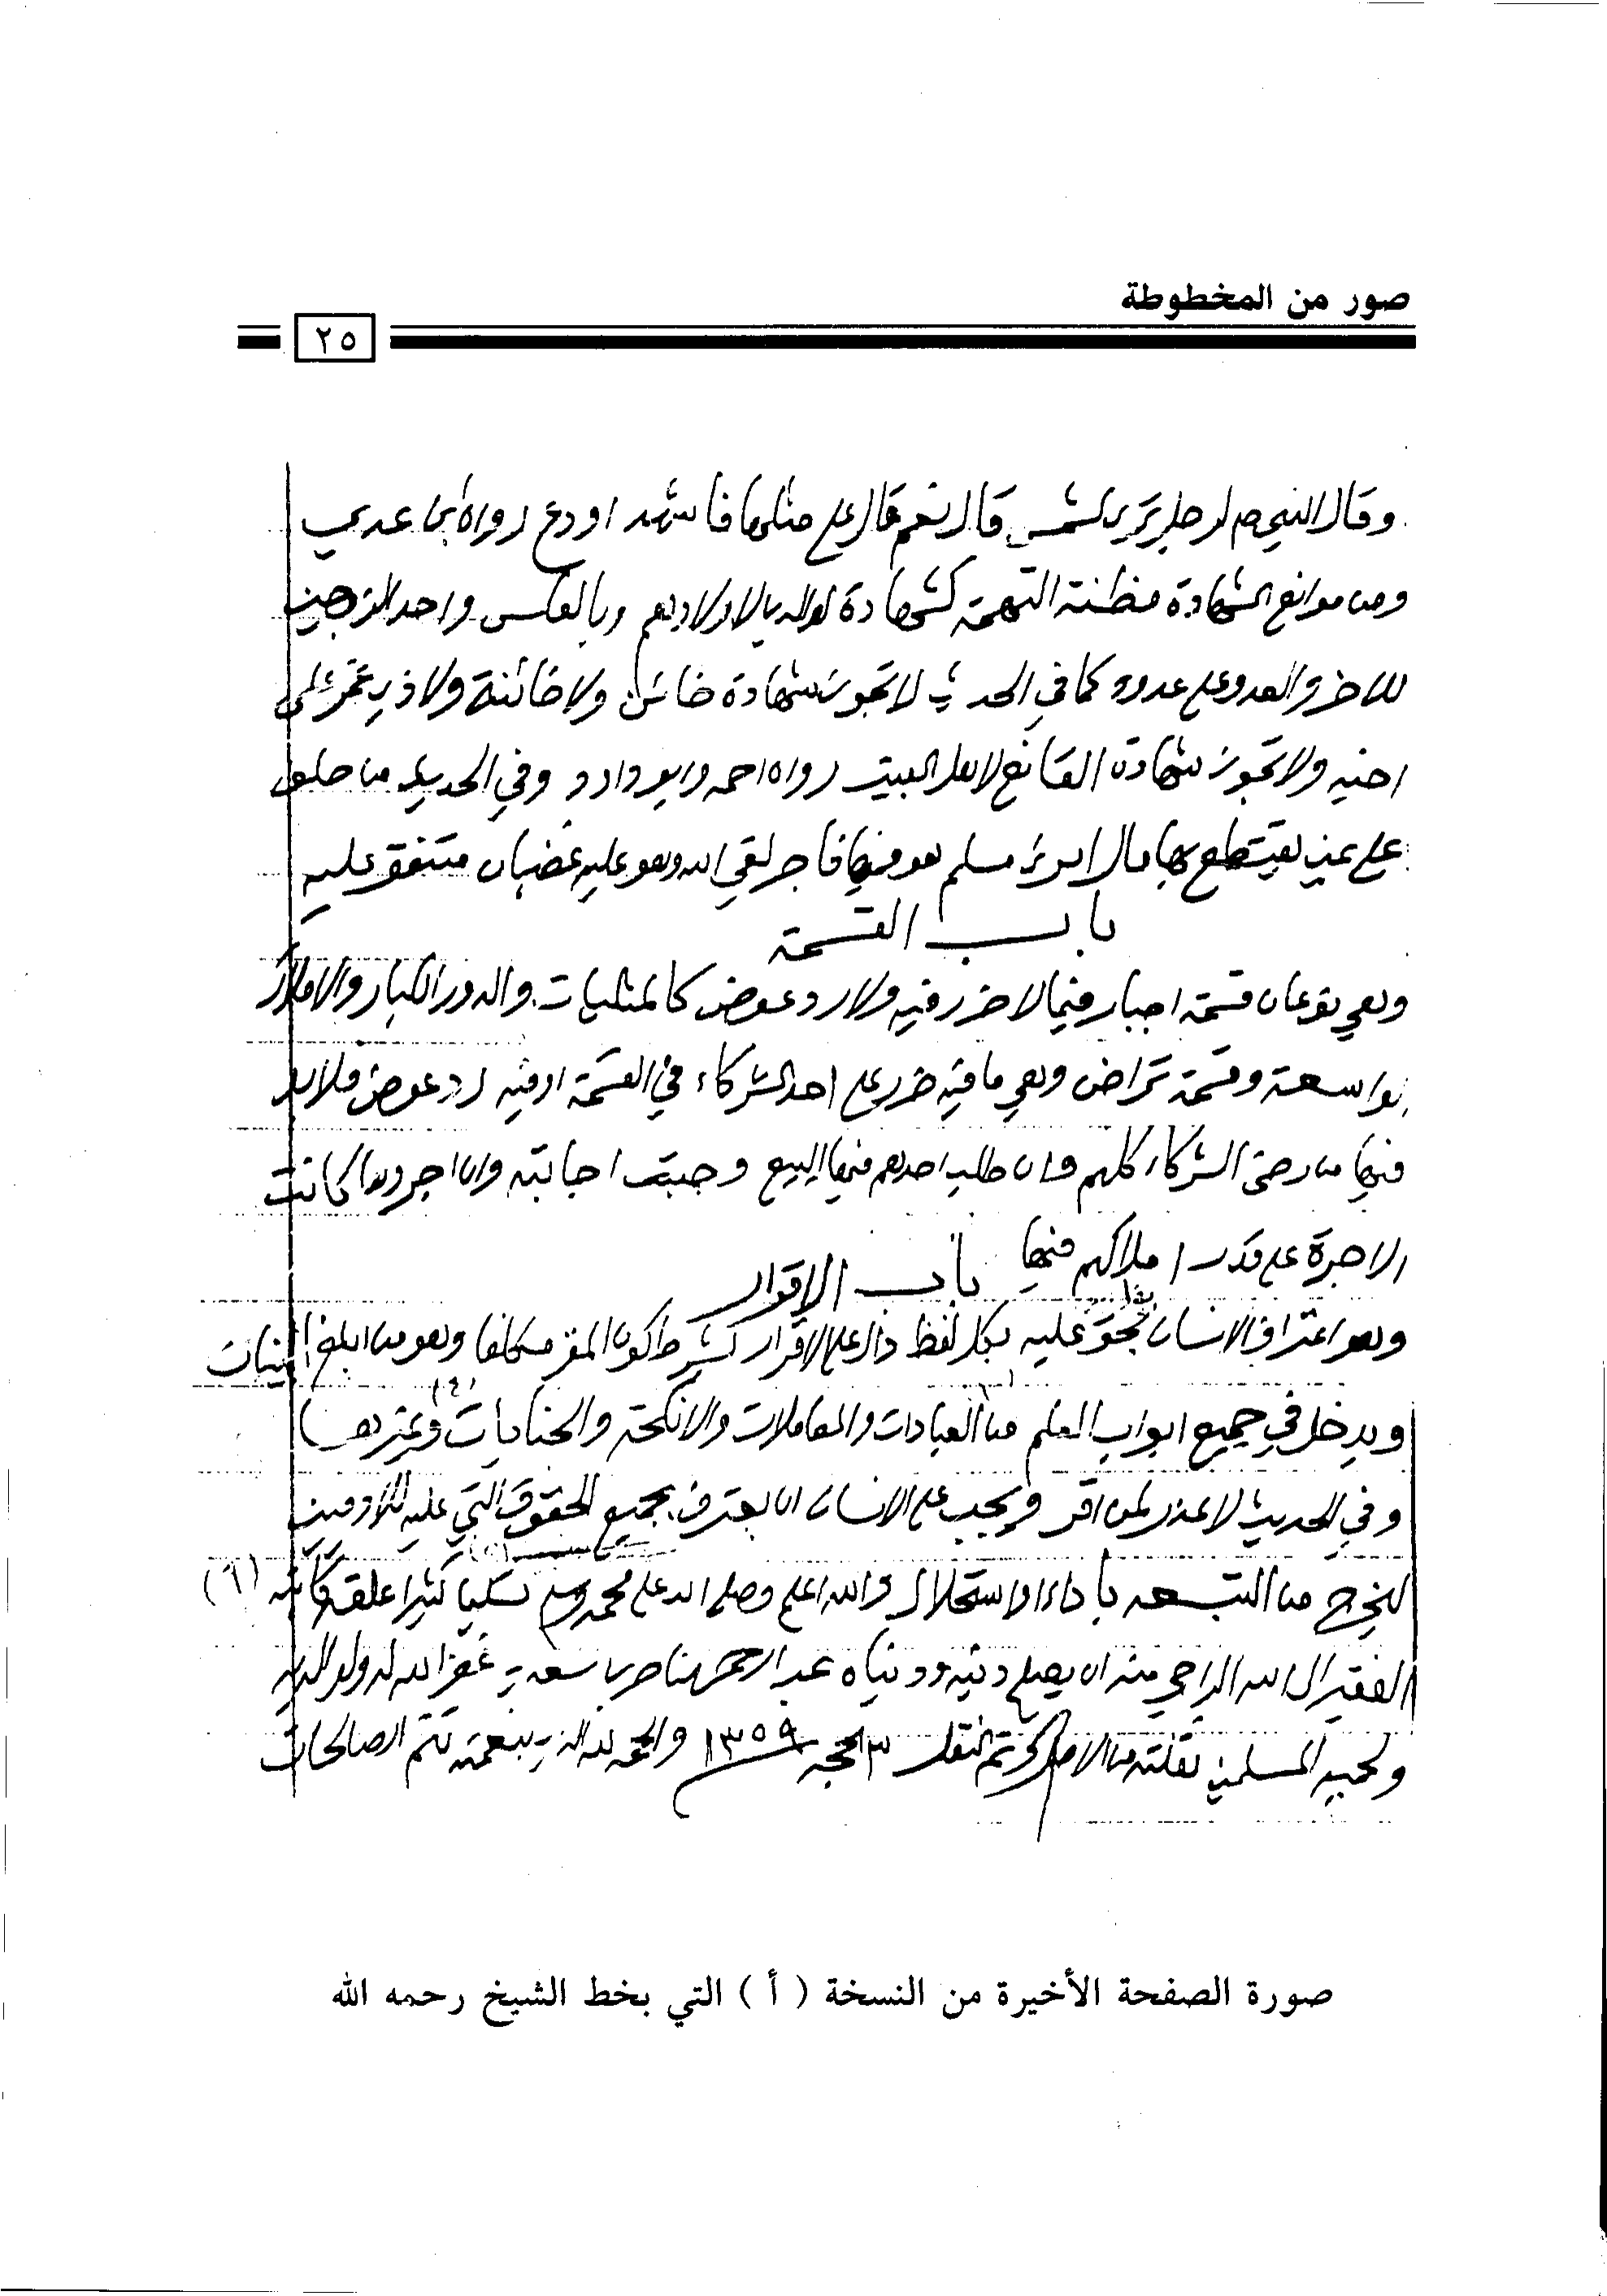 صور من المخطوطة
٢٥
وقال النبي صم لرجل ترى الشمس قال نعم قال على مثلها فاشهد او دع رواه ابن عدي
ومن موانع الشهادة مظنة التهمة كشهادة الوالدين لاولادهم وبالعكس واحد الزوجين
للاخر والعدو على عدوه كما في الحديث لا تجوز شهادة خائن ولا خائنة ولا ذي غمر على
اخيه ولا تجوز شهادة القانع لاهل البيت رواه احمد وابو داود وفي الحديث من حلف
على يمين يقتطع بها مال امرئ مسلم هو فيها فاجر لقي الله وهو عليه غضبان متفق عليه
باب القسمة
وهي نوعان قسمة اجبار فيما لا ضرر فيه ولا رد عوض كالمثليات والدور الكبار والاملاك
الواسعة وقسمة تراض وهي ما فيه ضرر على احد الشركاء في القسمة او فيه رد عوض فلا بد
فيها من رضى الشركاء كلهم وان طلب احدهم فيها البيع وجبت اجابته وان اجروها كانت
الاجرة على قدر املاكهم فيها باب الاقرار
وهو اعتراف الانسان بحق عليه بكل لفظ دال على الاقرار بشرط كون المقر مكلفا وهو من ابلغ البينات
ويدخل في جميع ابواب العلم من العبادات والمعاملات والانكحة والجنايات وغيرها (٤)
وفي الحديث لا عذر لمن اقر ويجب على الانسان ان يعترف بجميع الحقوق التي عليه للآدميين
ليخرج من التبعه باداء او استحلال والله اعلم وصلى الله على محمد وسلم تسليما كثيرا علقه كاتبه (٦)
الفقير الى الله الراجي منه ان يصلح دينه ودنياه عبد الرحمن بن ناصر بن سعدي غفر الله له ولوالديه
ولجميع المسلمين نقلته من الاصل وتم النقل ٣ الحجه ١٣٥٩ والحمد لله الذي بنعمته تتم الصالحات
صورة الصفحة الأخيرة من النسخة ( أ ) التي بخط الشيخ رحمه الله